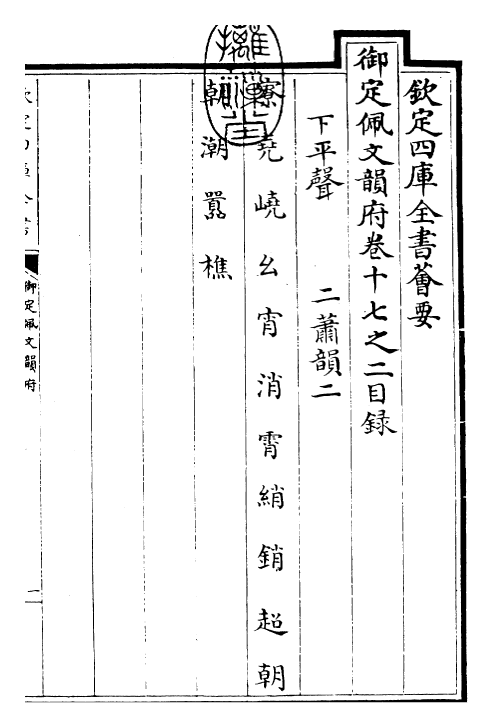 欽定四庫全書薈要
御定佩文韻府卷十七之二目録
下平聲　二蕭韻二
寮堯嶢幺宵消霄綃銷超朝
朝潮囂樵
御定佩文韻府
一